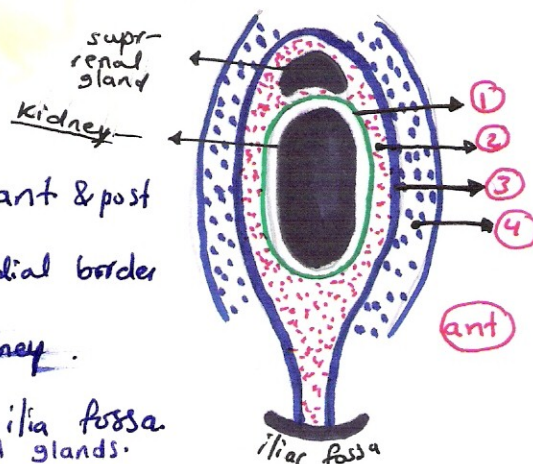 supr-
renal
gland
Kidney
1
2
3
4
ant & post
dial border
ney.
ilia fossa.
d glands.
ant
iliac fossa